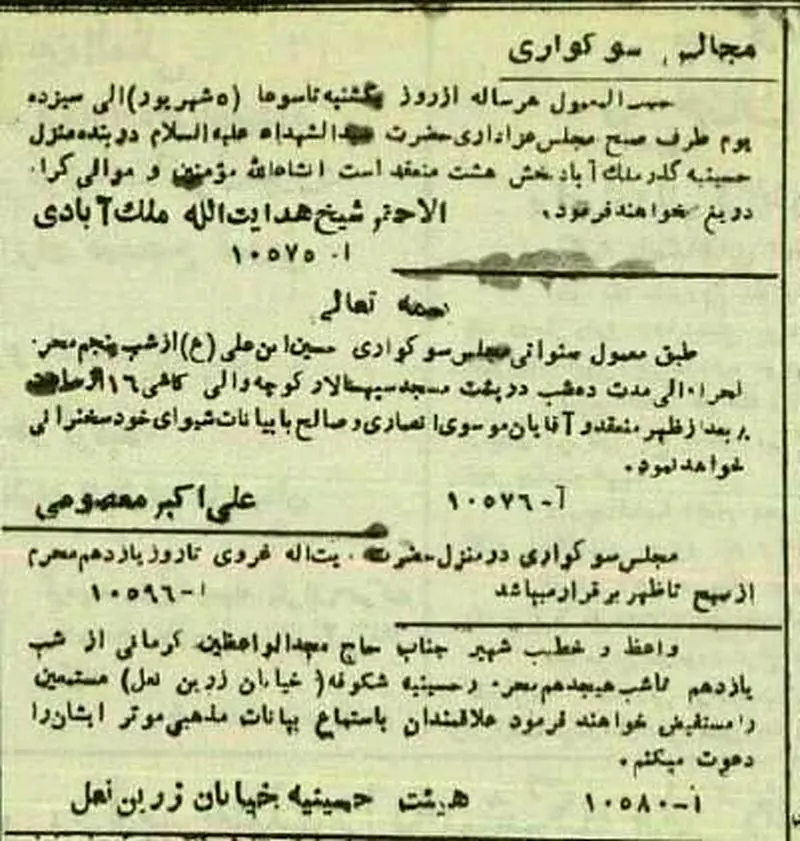 مجالس سوکواری
حسب المعمول هرساله ازروز یکشنبه تاسوعا (۵ شهریور) الی سیزده
یوم طرف صبح مجلس عزاداری حضرت سیدالشهداء علیه السلام دربنده منزل
حسینیه گذر ملک آباد بخش هشت منعقد است انشاءالله مؤمنین و موالی کرا.
دریغ نخواهند فرمود.
الاحقر شیخ هدایت الله ملک آبادی
آ- ۱۰۵۷۵
بسمه تعالی
طبق معمول سنواتی مجلس سوکواری حسین ابن علی (ع) از شب پنجم محر.
لحرام الی مدت ده شب در پشت مسجد سپهسالار کوچه والی کاشی ۱۶ از ساعت
۸ بعد از ظهر منعقد و آقایان موسوی انصاری و صالح با بیانات شیوای خود سخنرانی
خواهد نمود.
آ- ۱۰۵۷۶ علی اکبر معصومی
مجلس سوکواری در منزل حضرت آیت اله غروی تا روز یازدهم محرم
از صبح تا ظهر برقرار میباشد آ-۱۰۵۹۶
واعظ و خطیب شهیر جناب حاج مجدالواعظین کرمانی از شب
یازدهم تا شب هیجدهم محرم در حسینیه شکوفه (خیابان زرین نعل) مستمعین
را مستفیض خواهند فرمود علاقمندان باستماع بیانات مذهبی موثر ایشان را
دعوت میکنم.
آ-۱۰۵۸۰ هیئت حسینیه خیابان زرین نعل